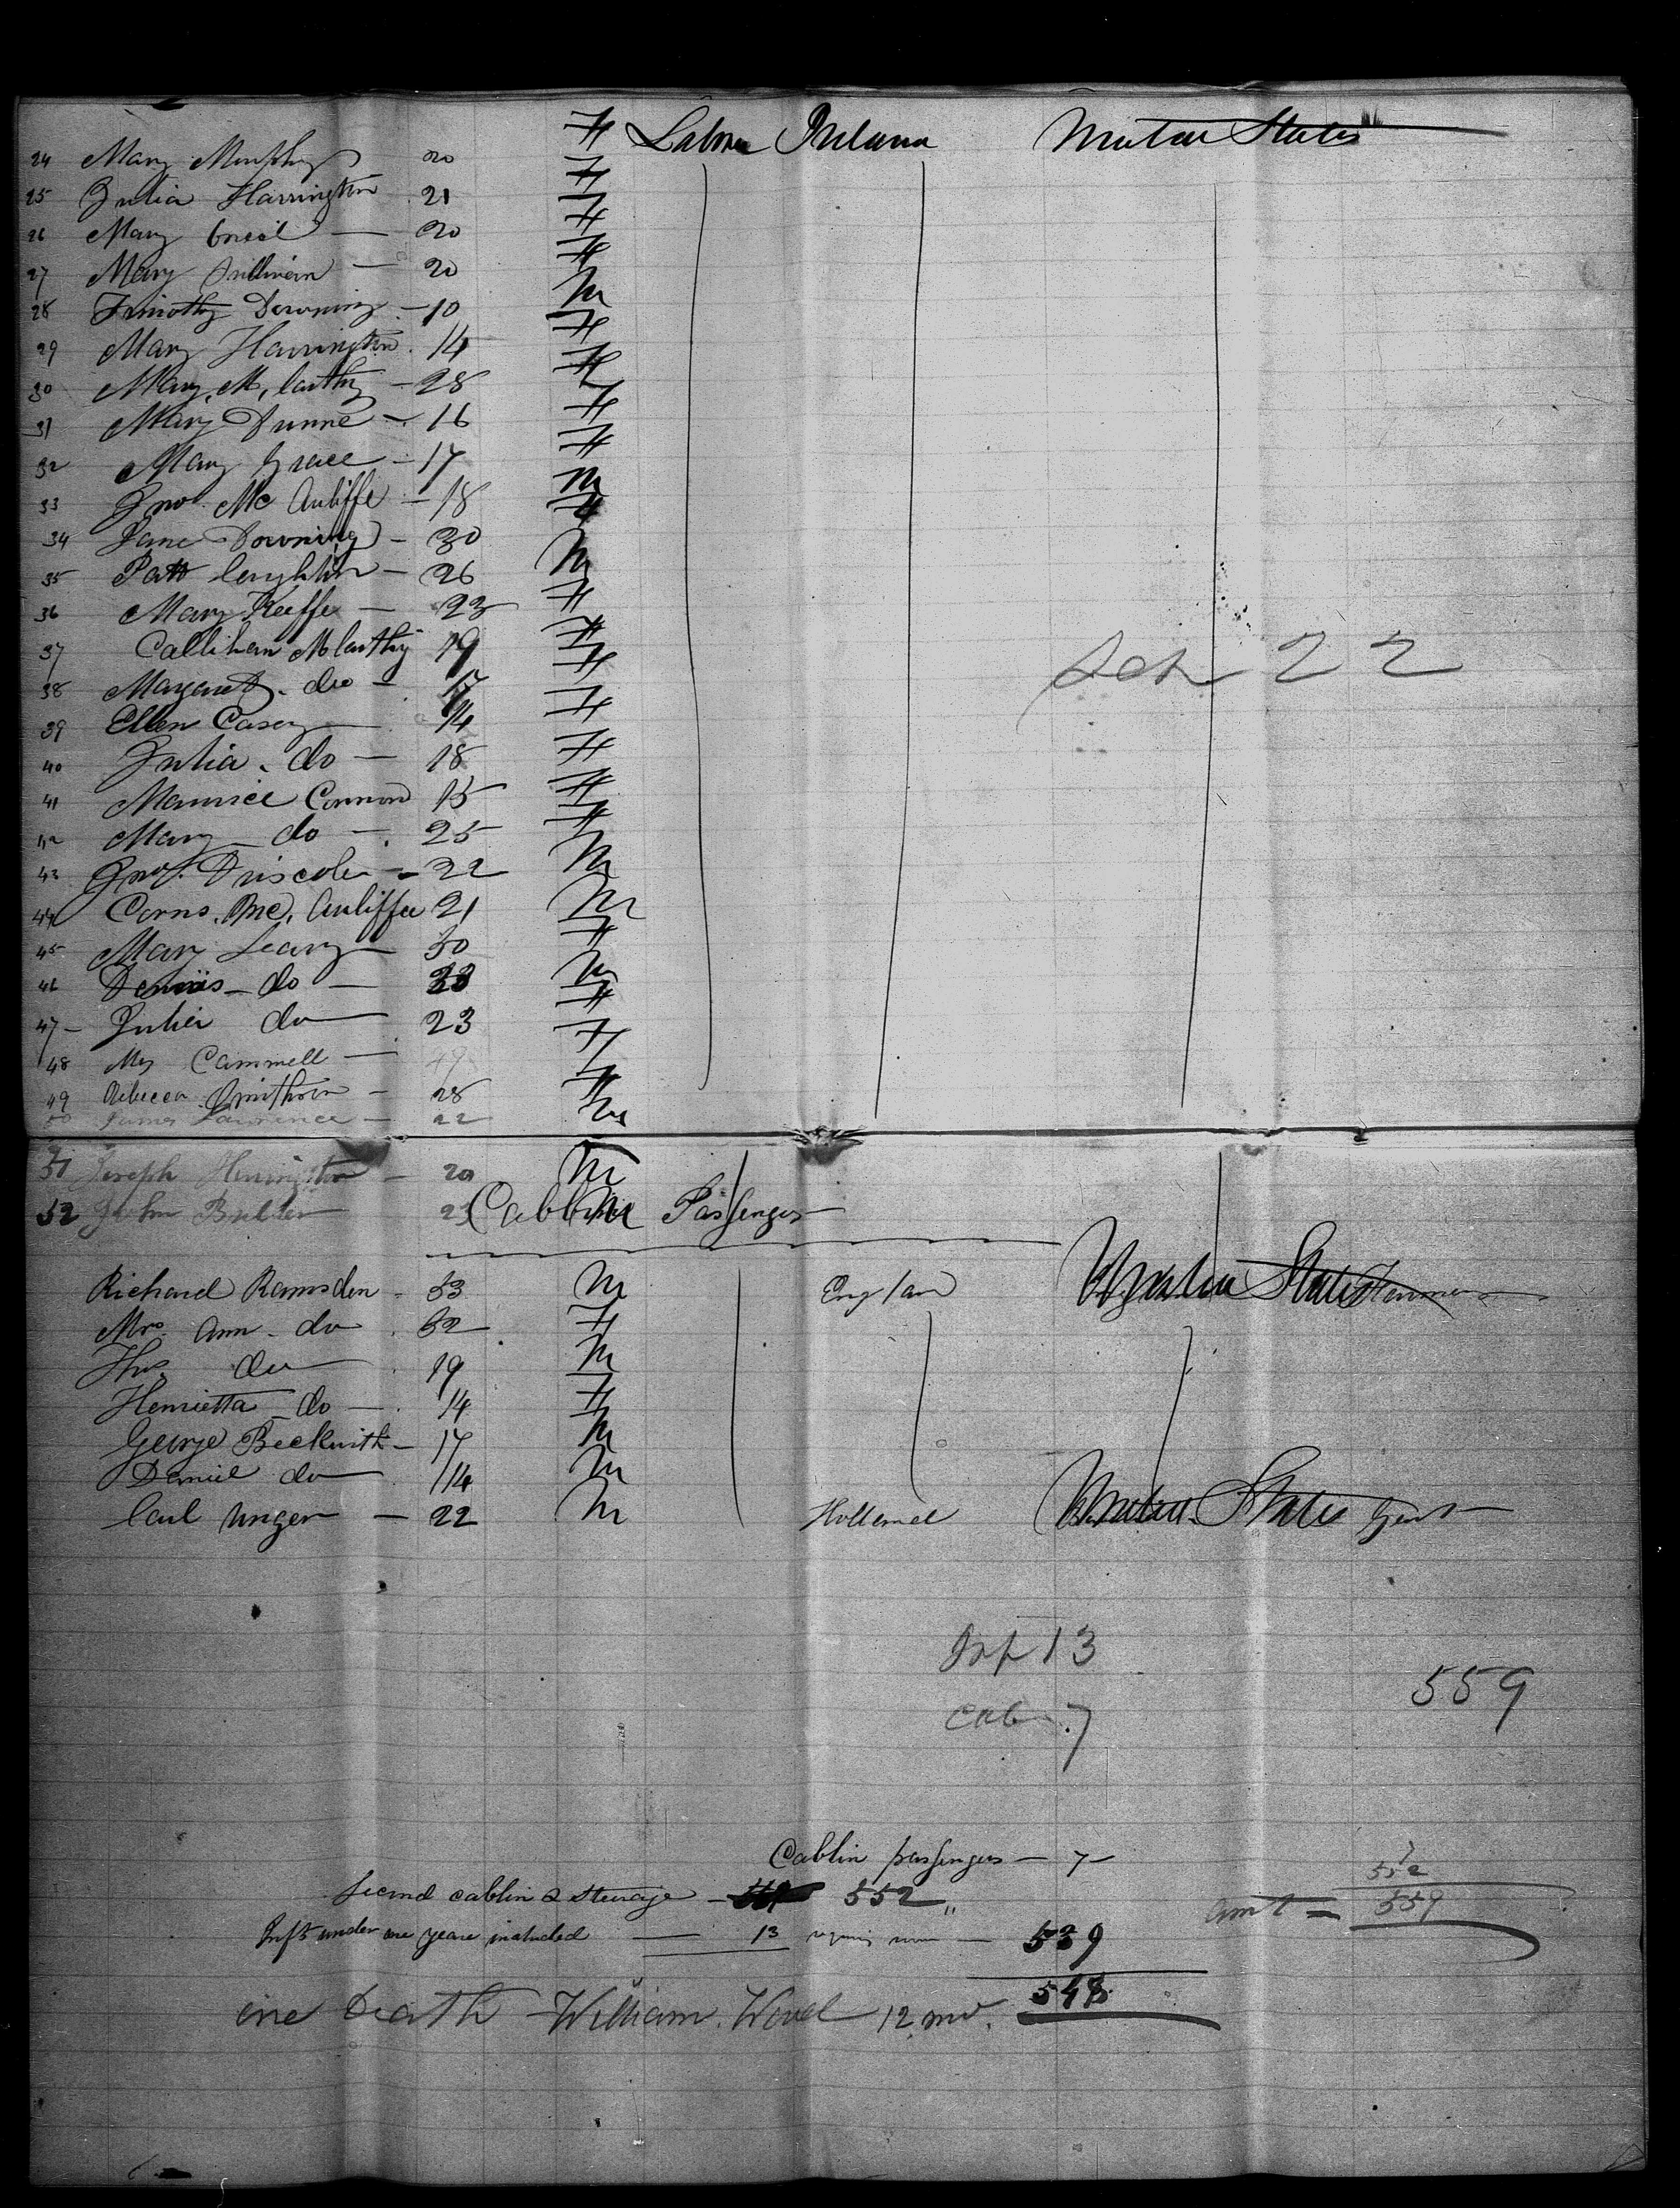 F Labor Ireland United States
24 Mary Murphy 20 F
25 Julia Harrington 21 F
26 Mary Oneil — 20 F
27 Mary Sullivan — 20 F
28 Timothy Downing - 10 M
29 Mary Harrington 14 F
30 Mary Mc Carthy - 28 F
31 Mary Dunne - 16 F
32 Mary Grace - 17 F
33 Jno. Mc Auliffe - 18 M
34 Jane Downing - 30 F
35 Patt Coughlin - 26 M
36 Mary Keeffe - 23 F
37 Callihan McCarthy 19 F
38 Margaret do - 17 F
39 Ellen Casey 14 F
40 Julia do - 18 F
41 Maurice Connord 15 F
42 Mary do - 25 F
43 Jno. Driscole - 22 M
44 Corns. Mc. Auliffee 21 M
45 Mary Leary - 50 F
46 Dennis - do - 23 M
47 - Julia do 23 F
48 Mrs Cammell — 49 F
49 Rebecca Smithson - 28 F
50 James Lawrence - 22 M
51 Joseph Harrington - 20 M
52 John 23 M
Cabbin Passengers
Richard Ramsden - 53 M England United States
Mrs. Ann. do 52 F
Thos do 19 M
Henrietta do — 14 F
George Beckwith - 17 M
Daniel do 14 M
Carl Unger - 22 M Holland United States Gent
22
Inf 13
559
Cab 7
Cabbin passengers — 7 —
Second cabbin & Steerage 552 "
Infts under one yeare included — 13 — 539
7
552
amt = 559
one Death William. Wood 12 mo.